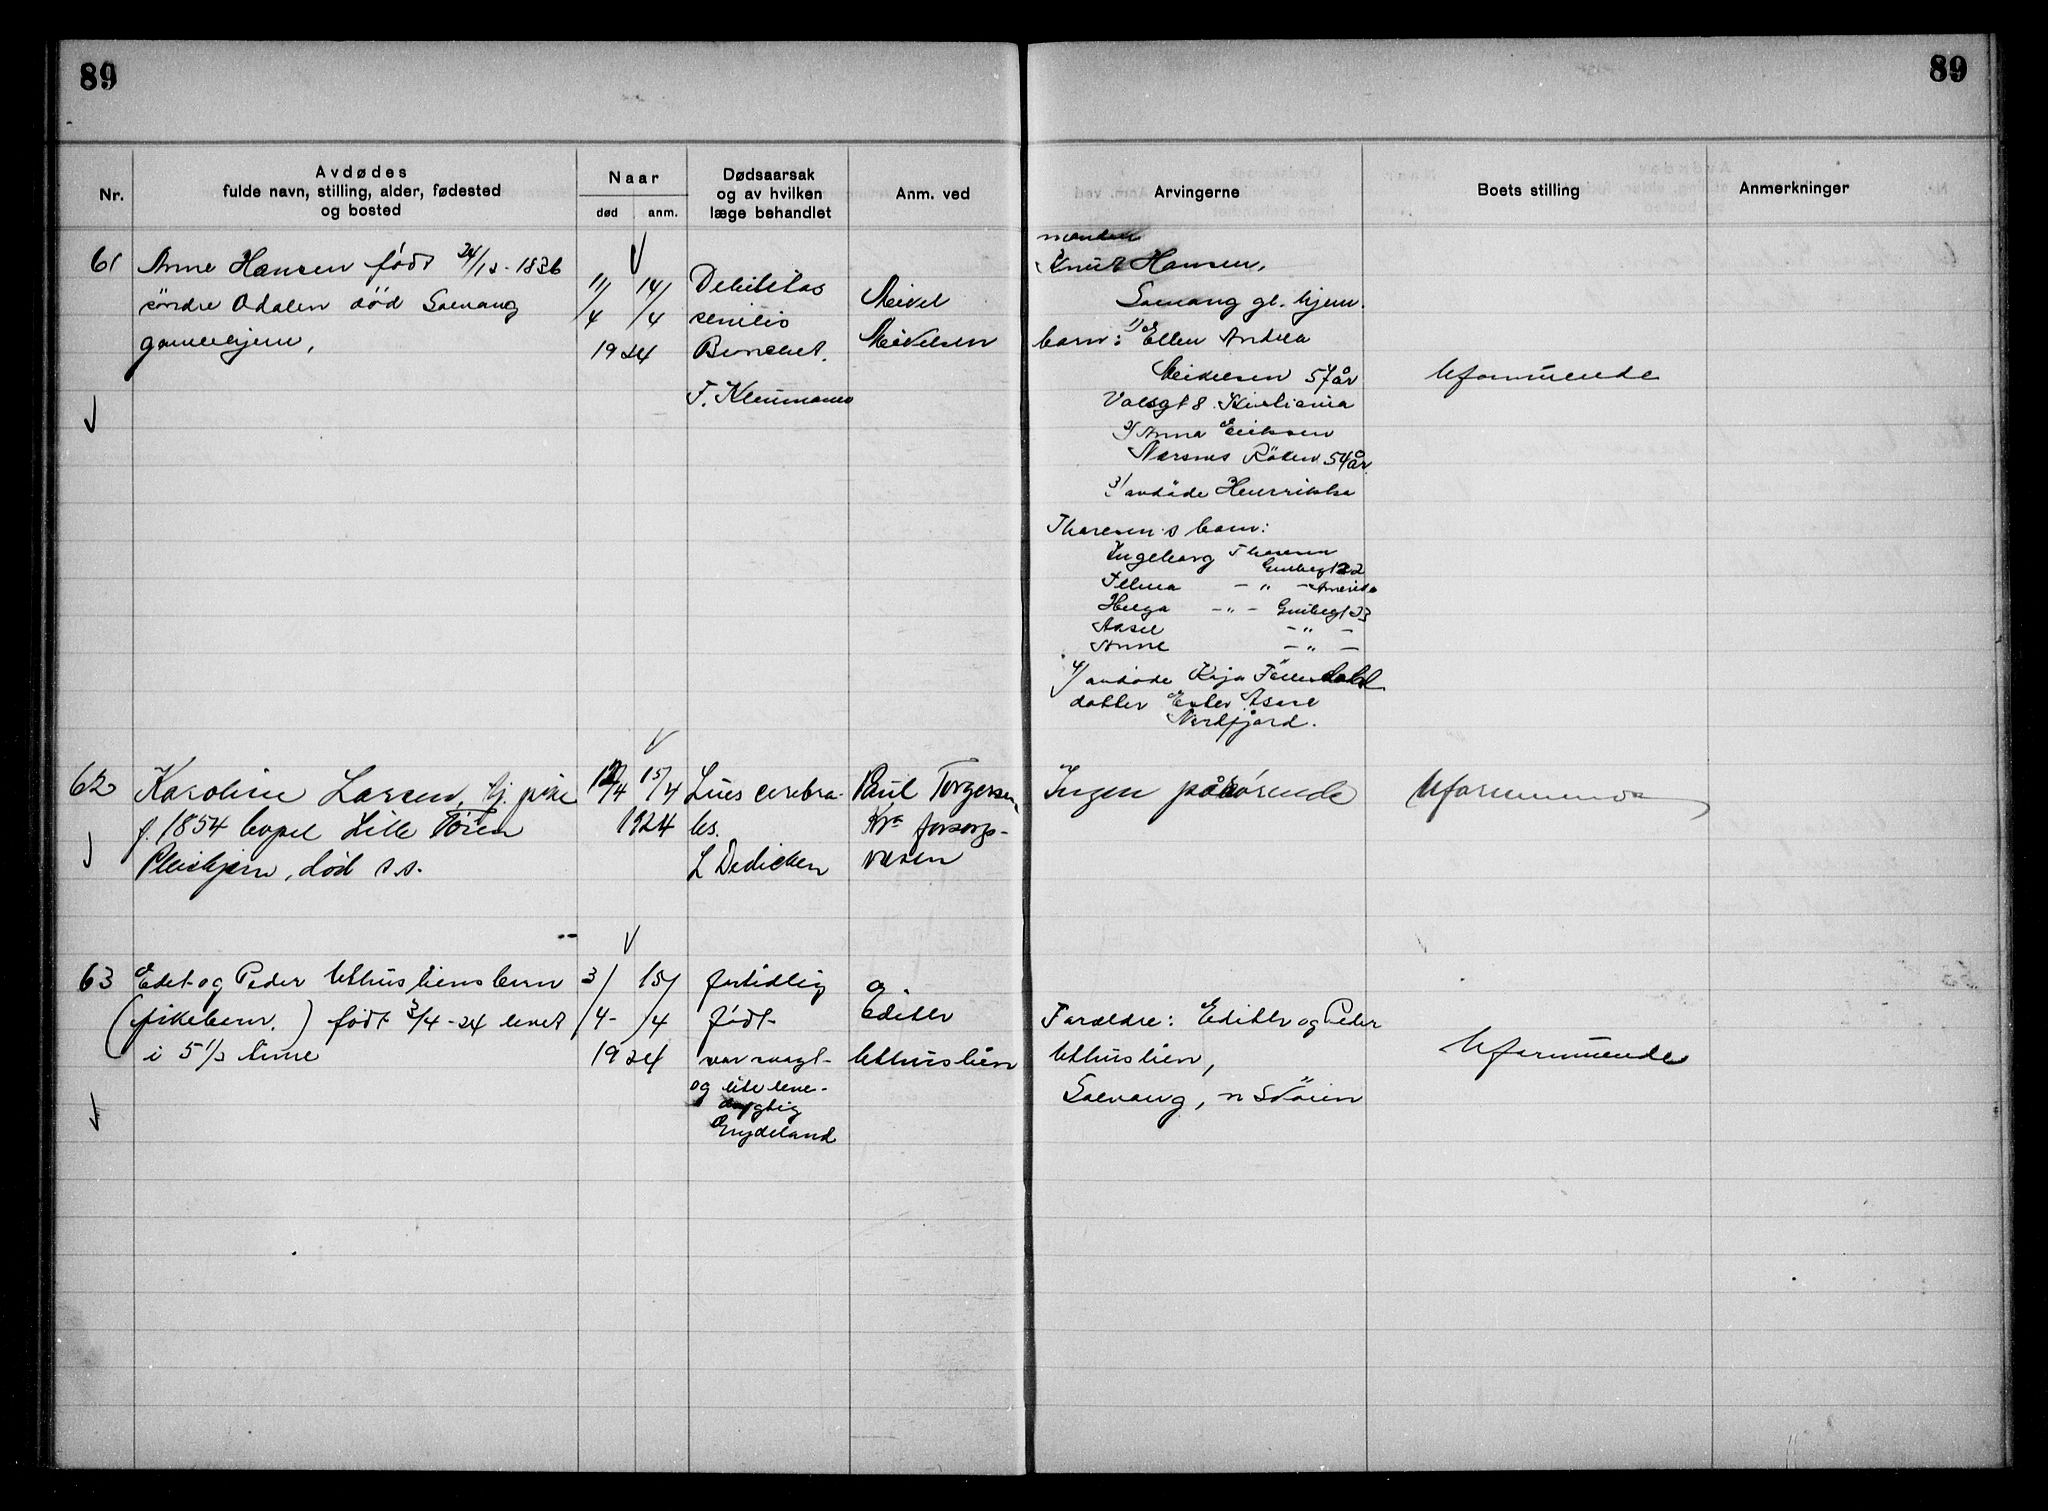 89
89
Nr.
Avdødes
fulde navn, stilling, alder, fødested
og bosted
Naar
død
anm.
Dødsaarsak
og av hvilken
læge behandlet
Anm. ved
Arvingerne
Boets stilling
Anmerkninger
61
Anne Hansen født 24/12-1836
søndre Odalen død Solvang
gamlehjem,
11/4
14/4
1924
Debilitas
senilis
F.
manden
Knut Hansen,
Solvang gl. hjem.
barn: 1) Ellen Andrea
57 år
8. Kristiania
2) Anna Eriksen
Nærsnes Røken 54 år
3/ avdøde Henrikka
Thoresen's barn:
Ingeborg Thoresen
— " — Amerika
Helga — " —
Aksel — " —
Anne — " —
4/ avdøde Kaja
datter Ester
Nordfjord.
Uformuende
62
Karoline Larsen, tj. pike
f. 1854 bopel Lille Tøien
Pleiehjem, død s.s.
12/4
15/4
1924
Lues cerebra-
lis.
L Dedichen
Paul Torgersen,
Kra forsorgs-
væsen
Ingen pårørende
Uformuende
63
Edit og Peder Uthusliens barn
(pikebarn.) født 3/4-24 levet
i 5 1/2 time
3/4
15/4
1924
fortidlig
født
var svagt-
og lite leve-
dygtig
Grydeland
Edith
Uthuslien
Forældre: Edith og Peder
Uthuslien,
Solvang, n Støien
Uformuende